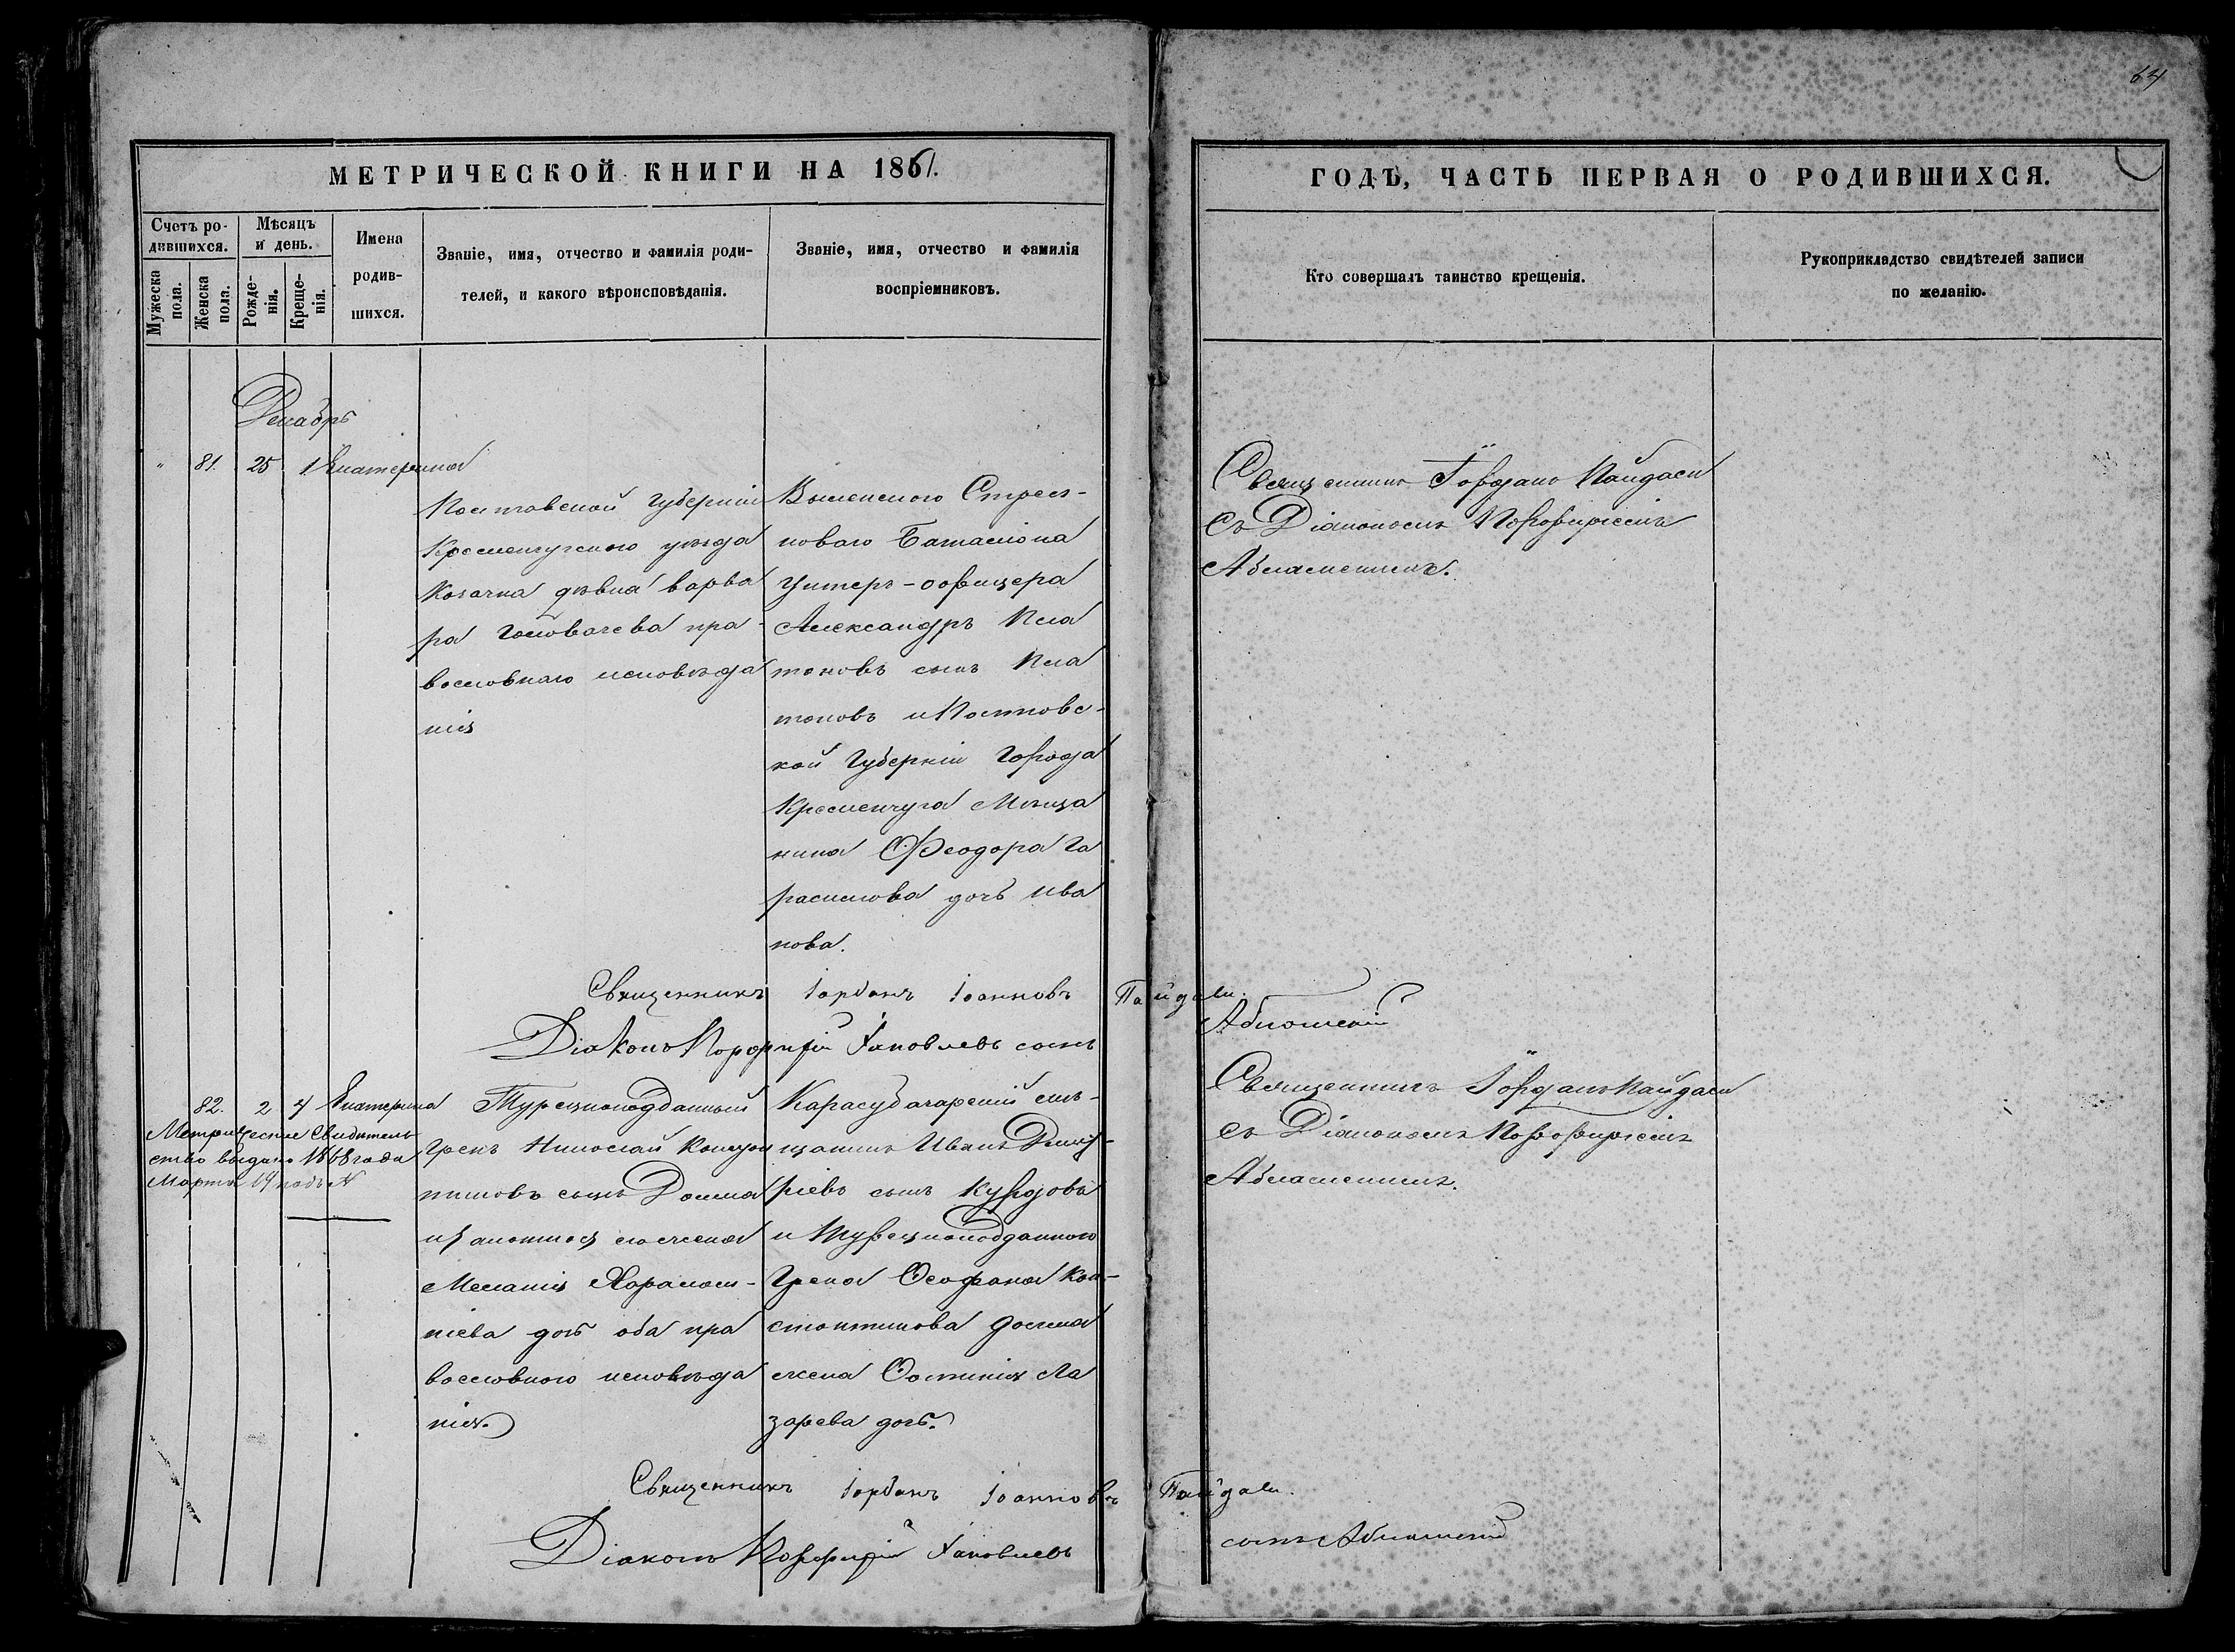 64
МЕТРИЧЕСКОЙ КНИГИ НА 1861.
ГОДЪ, ЧАСТЬ ПЕРВАЯ О РОДИВШИХСЯ.
Счетъ ро-
дившихся.
Мужеска
пола.
Женска
пола.
Мѣсяцъ
и день.
Рожде-
нія.
Креще-
нія.
Имена
родив-
шихся.
Званіе, имя, отчество и фамилія роди-
телей, и какого вѣроисповѣданія.
Званіе, имя, отчество и фамилія
воспріемниковъ.
Кто совершалъ таинство крещенія.
Рукоприкладство свидѣтелей записи
по желанію.
Декабрь
" 81. 25 1 Екатерина
Полтавской Губерніи
Кременчугского уѣзда
Козачка дѣвка Варва
ра Головачева пра-
вославнаго исповѣда
нія
Стрел-
коваго Баталіона
Унтеръ-офицера
Александръ Пла
тоновъ сынъ Пла
тоновъ и Полтавс-
кой Губерніи Города
Кременчуга Мѣща
нина Феодора Га
расимова дочь Ива
нова.
Священникъ Іорданъ Пайдаси
Съ Діакономъ Порфиріемъ
Священникъ Іорданъ Іоанновъ Пайдаси.
Діаконъ Порфирій Іаковлевъ сынъ
82. 2 4 Екатерина
Метрическое Свидѣтель
ство выдано 1868 года
Марта 14 подъ №
Турецкоподданный
Грекъ Николай Конста
нтиновъ сынъ
законная его жена
Меланія Харалам-
піева дочь оба пра
вославнаго исповѣда
нія.
Карасубазарскій мѣ-
щанинъ Иванъ Дмит-
ріевъ сынъ Курдовъ
и Турецкоподданного
Грека Феофана Кон-
стантинова
жена Фотинія Ла
зарева дочь.
Священникъ Іорданъ Пайдаси
Съ Діакономъ Порфиріемъ
Священникъ Іорданъ Іоанновъ Пайдаси.
Діаконъ Порфирій Іаковлевъ
сынъ